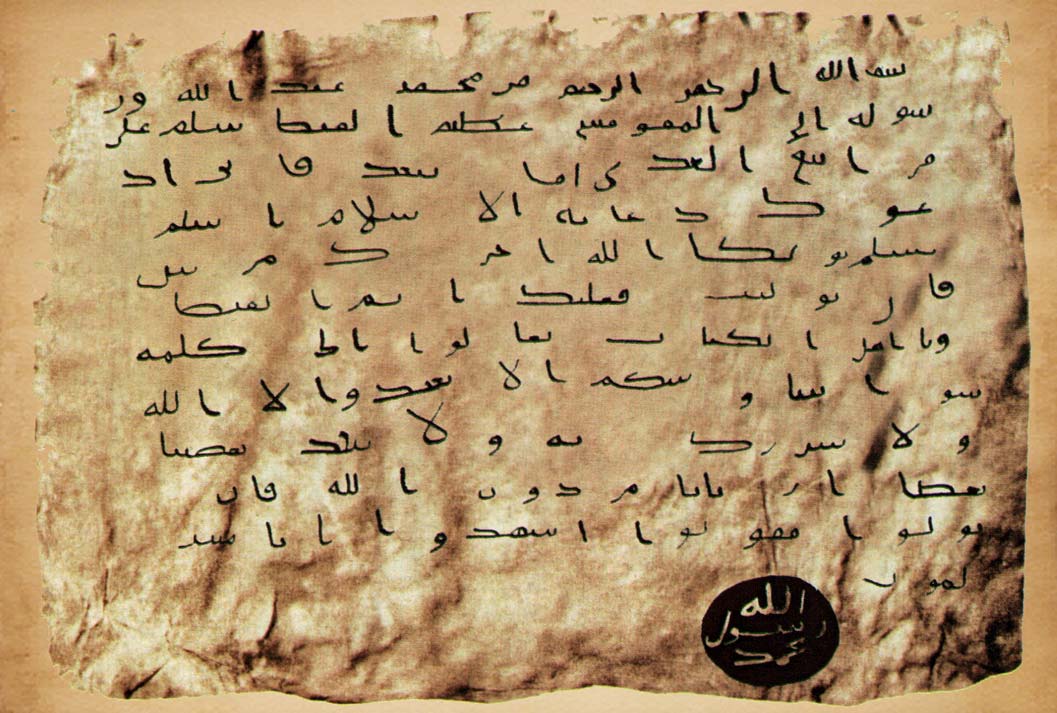 بسم الله الرحمن الرحيم من محمد عبد الله ور
سوله الى المقوقس عظيم القبط سلم على
من اتبع الهدى اما بعد فانى اد
عوك بدعاية الاسلام اسلم
تسلم يوتك الله اجرك مرتين
فان توليت فعليك اثم القبط
ويا اهل الكتاب تعالوا الى كلمة
سوا بيننا وبينكم الا نعبد الا الله
ولا نشرك به ولا يتخذ بعضنا
بعضا اربابا من دون الله فان
تولوا فقولوا اشهدوا بانا مسـ
لمون
الله
رسول
محمد